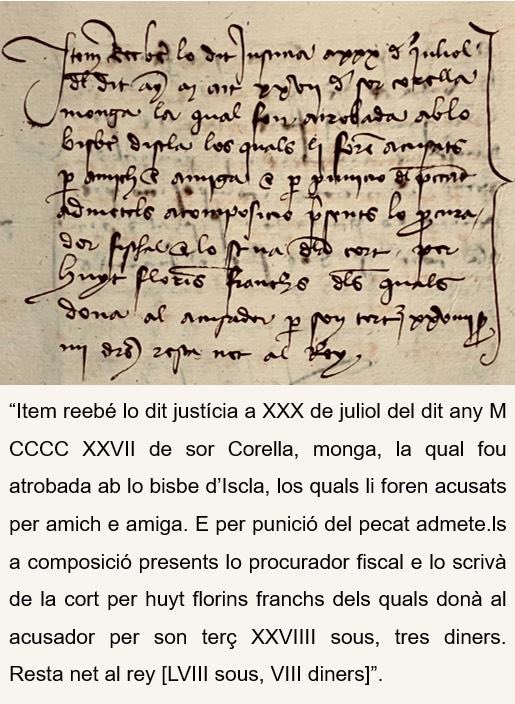 Item Reebe lo dit Justicia a xxx de juliol
del dit any m cccc xxvii de sor corella
monga la qual fou atrobada ab lo
bisbe discla los quals li foren acusats
per amich e amiga e per punicio del peccat
admetels a composicio presents lo procura
dor fischal e lo scriva dela cort per
huyt florins franchs dels quals
dona al acusador per son terç xxviiii
iii drs resta net al Rey
“Item reebé lo dit justícia a XXX de juliol del dit any M
CCCC XXVII de sor Corella, monga, la qual fou
atrobada ab lo bisbe d’Iscla, los quals li foren acusats
per amich e amiga. E per punició del pecat admete.ls
a composició presents lo procurador fiscal e lo scrivà
de la cort per huyt florins franchs dels quals donà al
acusador per son terç XXVIIII sous, tres diners.
Resta net al rey [LVIII sous, VIII diners]”.